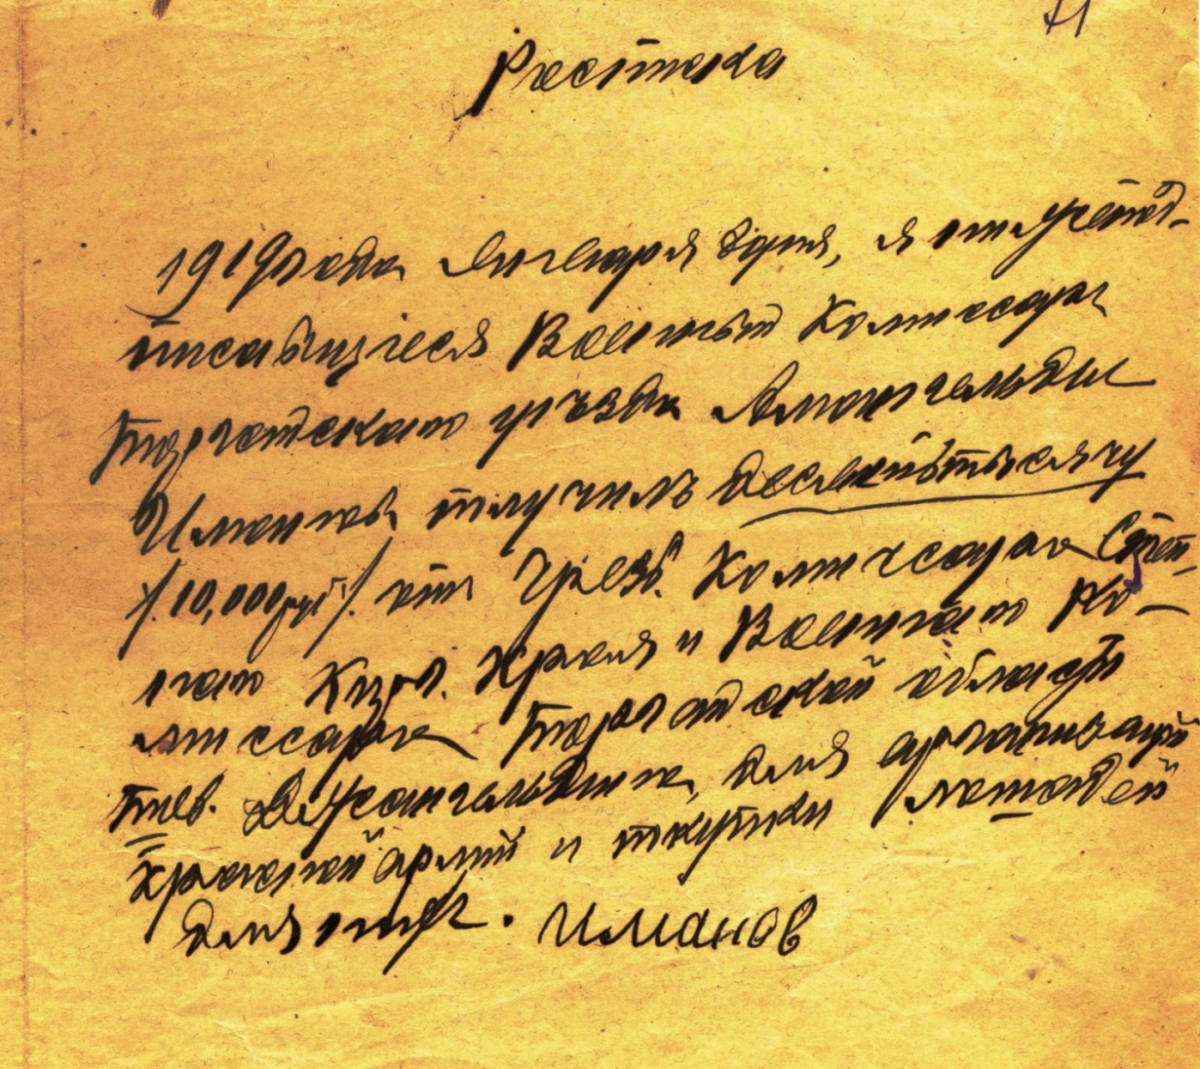 71
Росписка
1919 года Января дня, я нижепод-
писавшиеся Военный Комиссар
Тургайскаго уъзда Амангельды
Иманов получилъ десять тысячу
/10,000 руб/. от Чрезв. Комиссара Степ-
наго Кирг. Края и Военнаго Ко-
миссара Тургайской области
тов. Джангильдина, для организаций
Красной армий и покупки лошадей
для них. Иманов